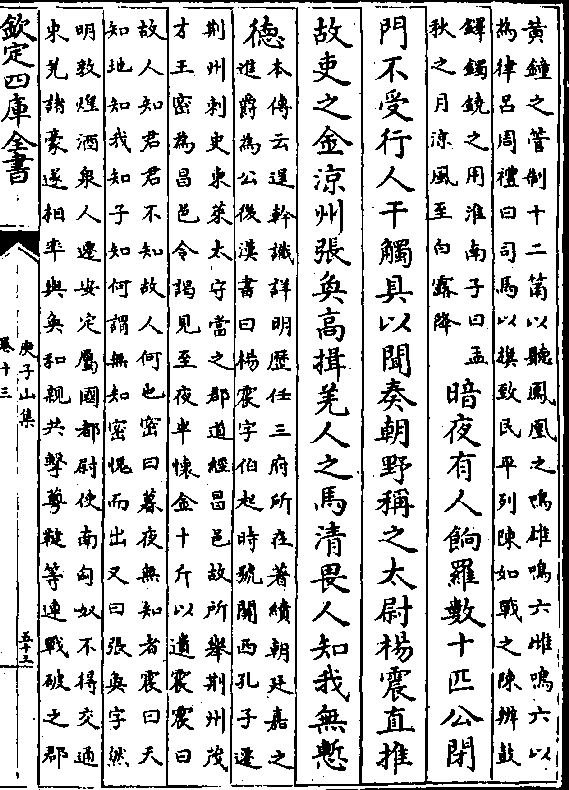 黃鐘之管制十二筩以聽鳳凰之鳴雄鳴六雌鳴六以
為律呂周禮曰司馬以旗致民平列陳如戰之陳辨鼓
鐸鐲鐃之用淮南子曰孟
秋之月涼風至白露降
暗夜有人餉羅數十匹公閉
門不受行人干觸具以聞奏朝野稱之太尉楊震直推
故吏之金涼州張奐高揖羌人之馬清畏人知我無慙
德
本傳云運幹識詳明歷任三府所在著績朝廷嘉之
進爵為公後漢書曰楊震字伯起時號關西孔子遷
荊州刺史東萊太守當之郡道經昌邑故所舉荊州茂
才王密為昌邑令謁見至夜半懷金十斤以遺震震曰
故人知君君不知故人何也密曰暮夜無知者震曰天
知地知我知子知何謂無知密愧而出又曰張奐字然
明敦煌酒泉人遷安定屬國都尉使南匈奴不得交通
東羌諸豪遂相率與奐和親共擊薁鞬等連戰破之郡
欽定四庫全書
庾子山集
卷十三
五十三